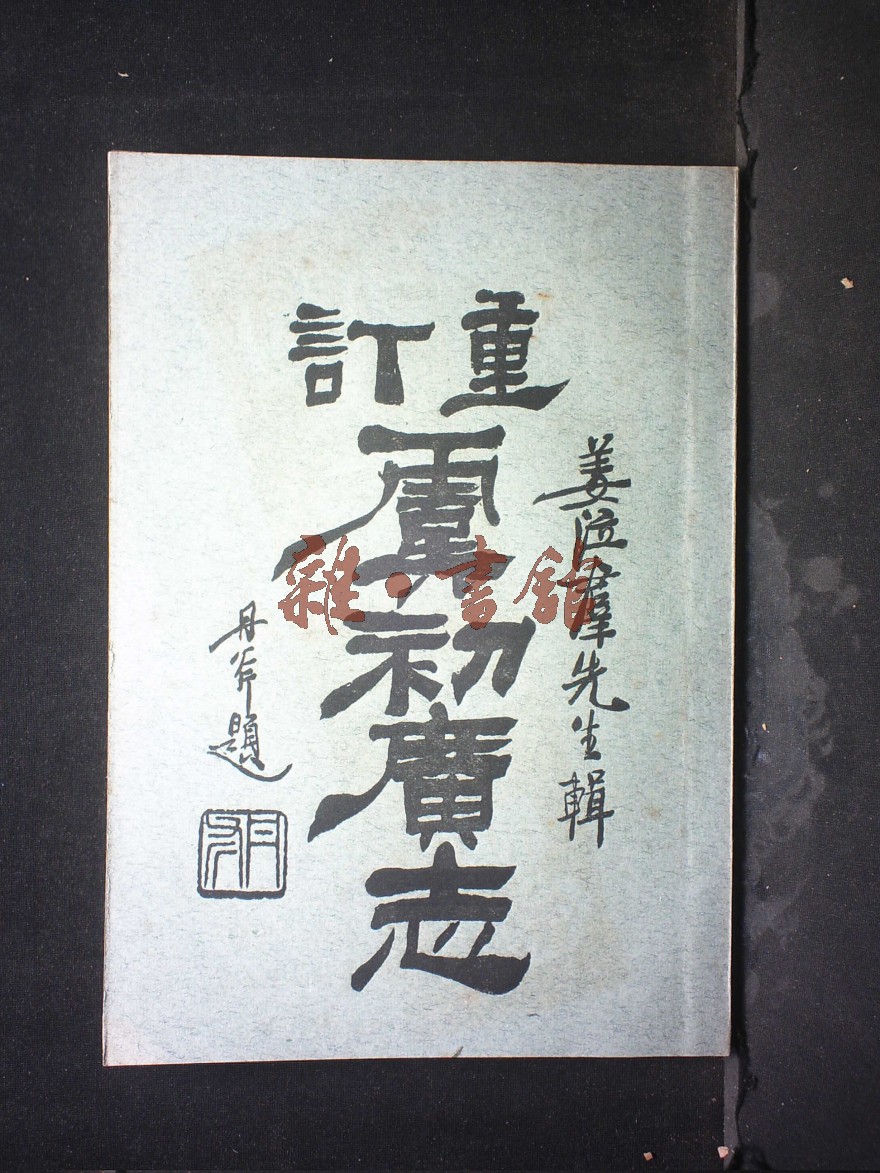 姜泣羣先生輯
重訂
虞初廣志
丹斧題
雜·書館